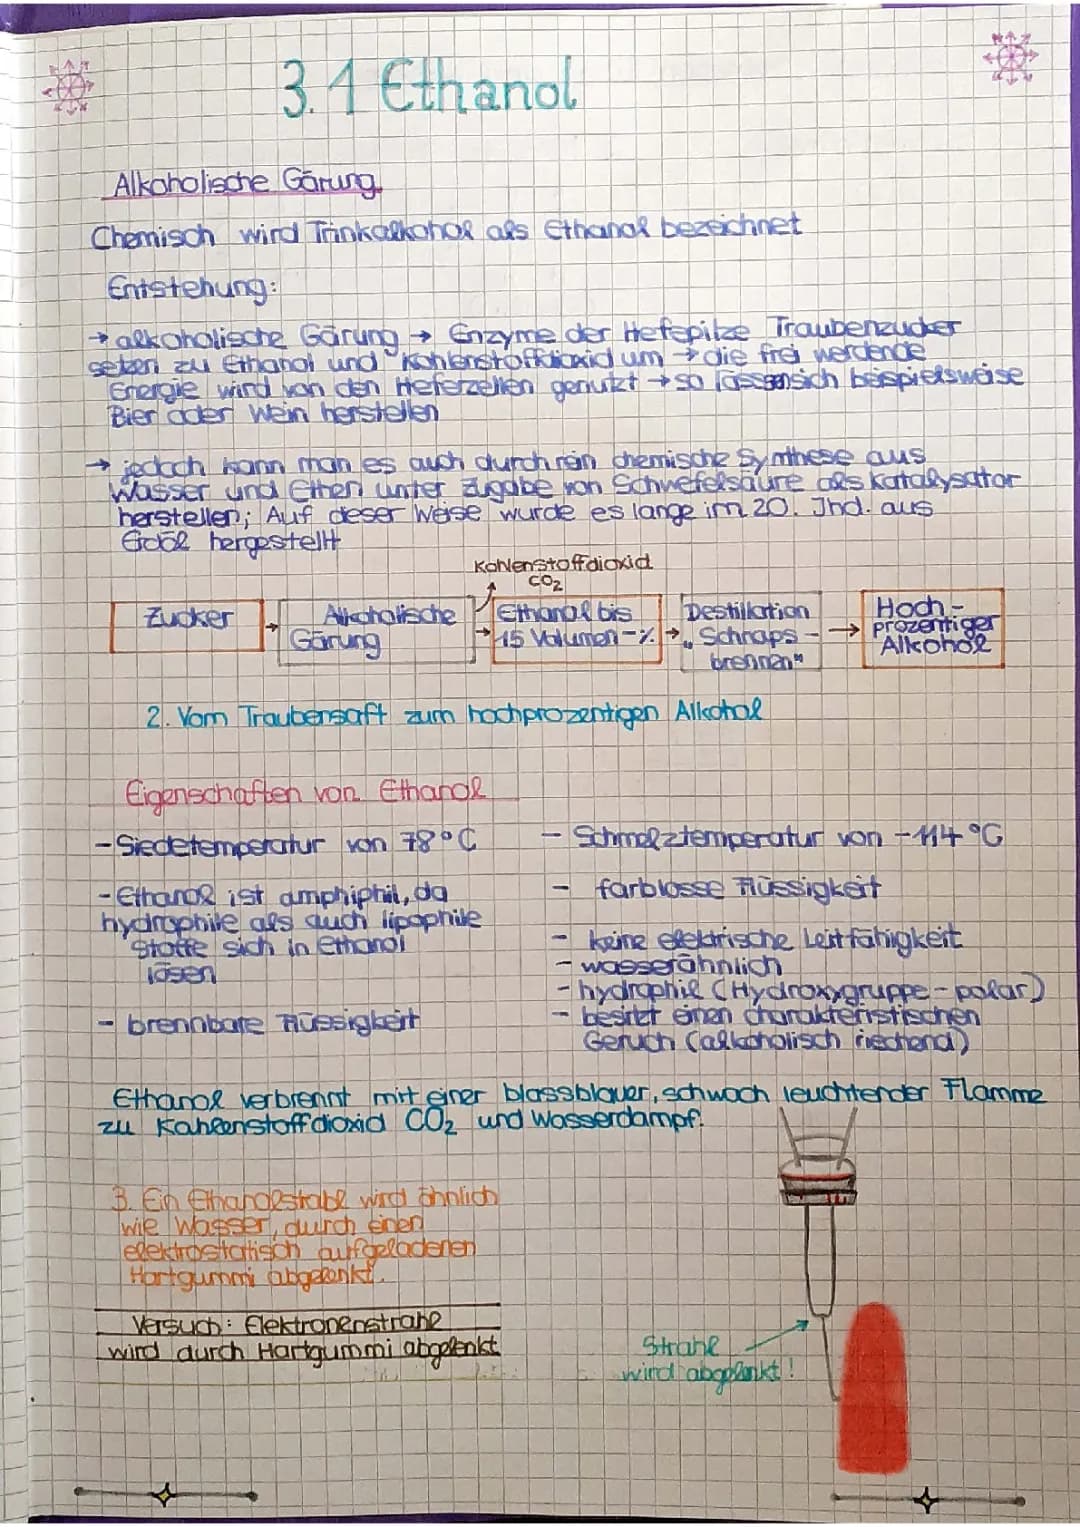 3.1 Ethanol
Alkoholische Gärung
Chemisch wird Trinkalkohol als Ethanol bezeichnet
Entstehung:
→ alkoholische Gärung → Enzyme der Hefepilze Traubenzucker
setzen zu Ethanol und Kohlenstoffdioxid um → die frei werdende
Energie wird von den Hefezellen genutzt → so lassen sich beispielsweise
Bier oder Wein herstellen
→ jedoch kann man es auch durch rein chemische Synthese aus
Wasser und Ethen unter Zugabe von Schwefelsäure als Katalysator
herstellen; Auf dieser Weise wurde es lange im 20. Jhd. aus
Erdöl hergestellt
Kohlenstoffdioxid
CO₂
Zucker → Alkoholische Gärung → Ethanol bis 15 Volumen-% → Destillation „Schnaps-brennen" → Hoch-prozentiger Alkohol
2. Vom Traubensaft zum hochprozentigen Alkohol
Eigenschaften von Ethanol
- Siedetemperatur von 78°C
- Ethanol ist amphiphil, da
hydrophile als auch lipophile
Stoffe sich in Ethanol
lösen
- brennbare Flüssigkeit
- Schmelztemperatur von -114°C
- farblosse Flüssigkeit
- keine elektrische Leitfähigkeit
- wasserähnlich
- hydrophil (Hydroxygruppe - polar)
- besitzt einen charakteristischen
Geruch (alkoholisch riechend)
Ethanol verbrennt mit einer blassblauer, schwach leuchtender Flamme
zu Kohlenstoffdioxid CO₂ und Wasserdampf.
3. Ein Ethanolstrahl wird ähnlich
wie Wasser, durch einen
elektrostatisch aufgeladenen
Hartgummi abgelenkt.
Versuch: Elektronenstrahl
wird durch Hartgummi abgelenkt
Strahl
wird abgelenkt!